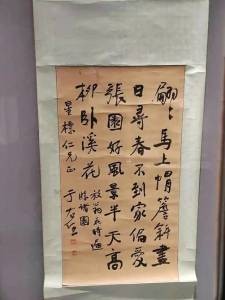 翩〻馬上帽簷斜盡
日尋春不到家偏愛
張園好風景半天高
柳卧溪花
星標仁兄正
于右任